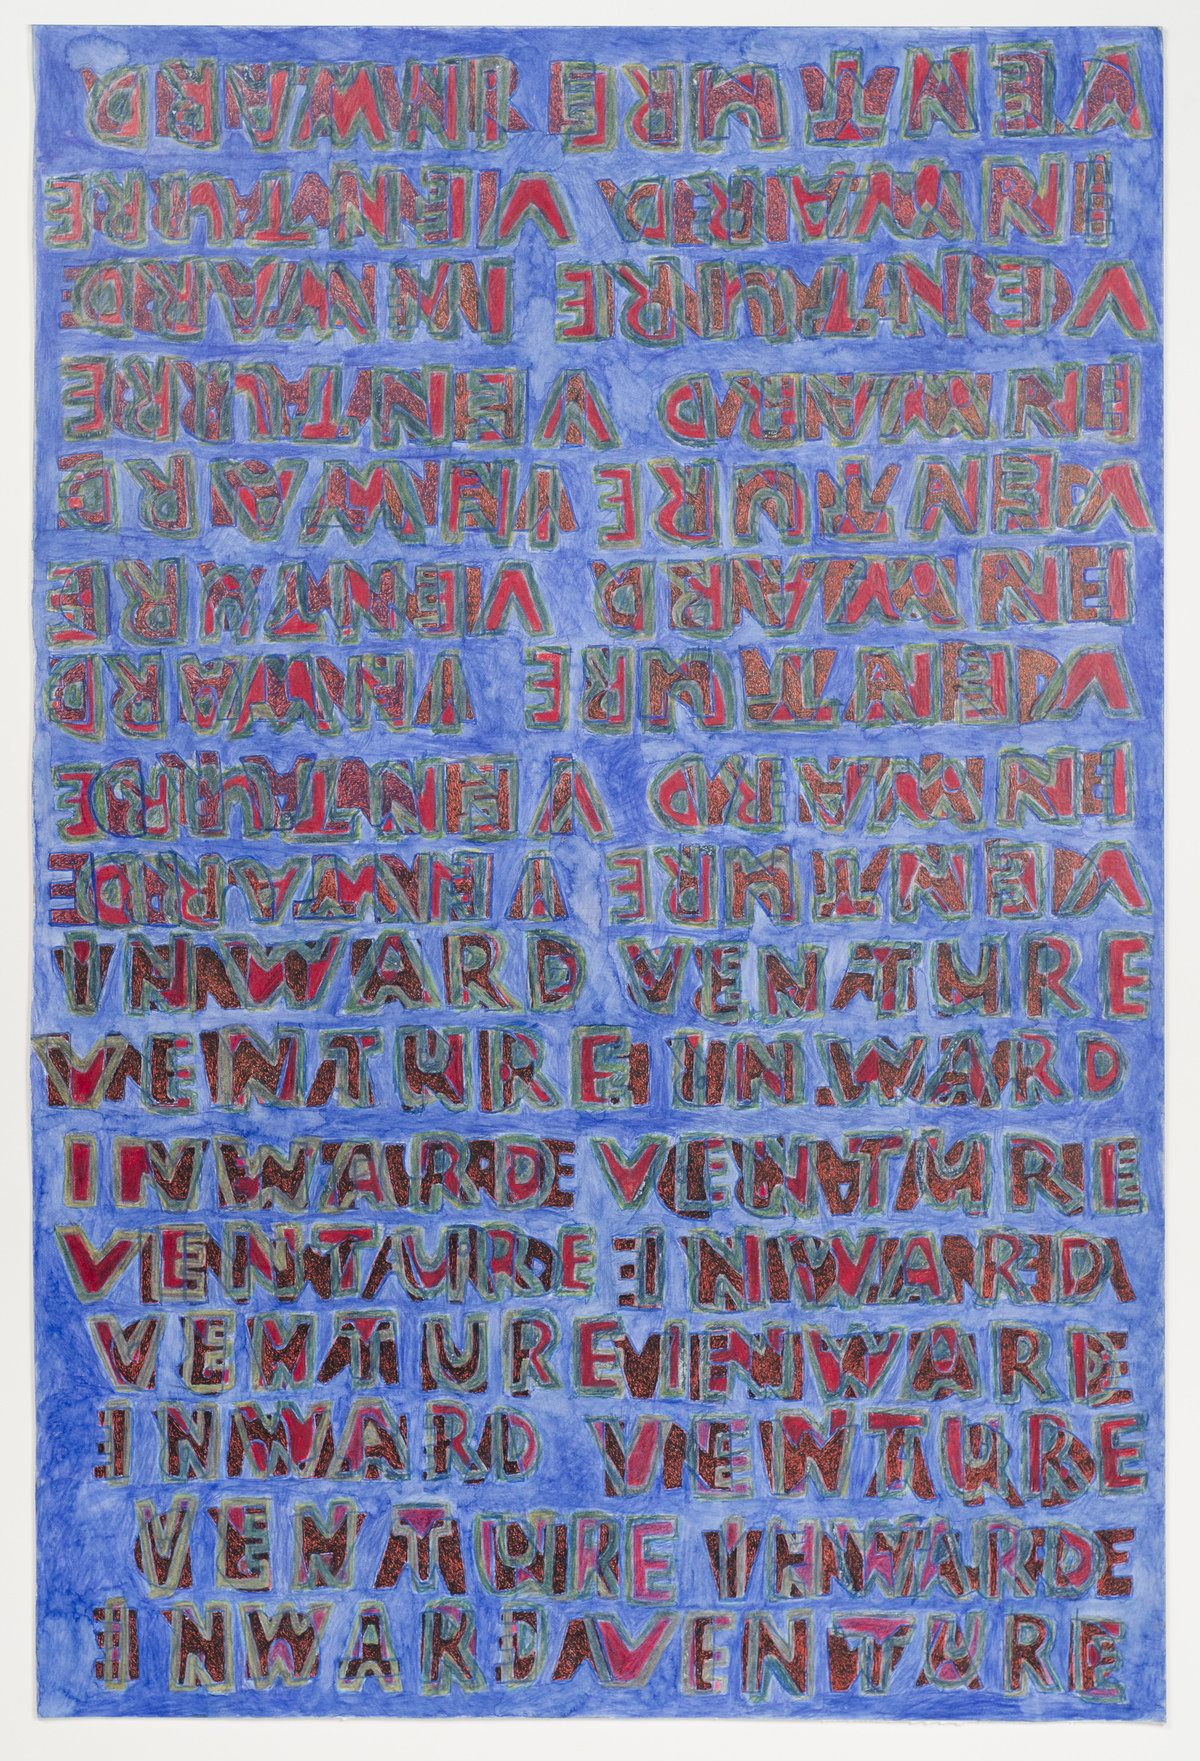 VENTURE INWARD
INWARD VENTURE
VENTURE INWARD
INWARD VENTURE
VENTURE INWARD
INWARD VENTURE
VENTURE INWARD
INWARD VENTURE
VENTURE INWARD
INWARD VENTURE
VENTURE INWARD
INWARD VENTURE
VENTURE INWARD
VENTURE INWARD
INWARD VENTURE
VENTURE INWARD
INWARD VENTURE